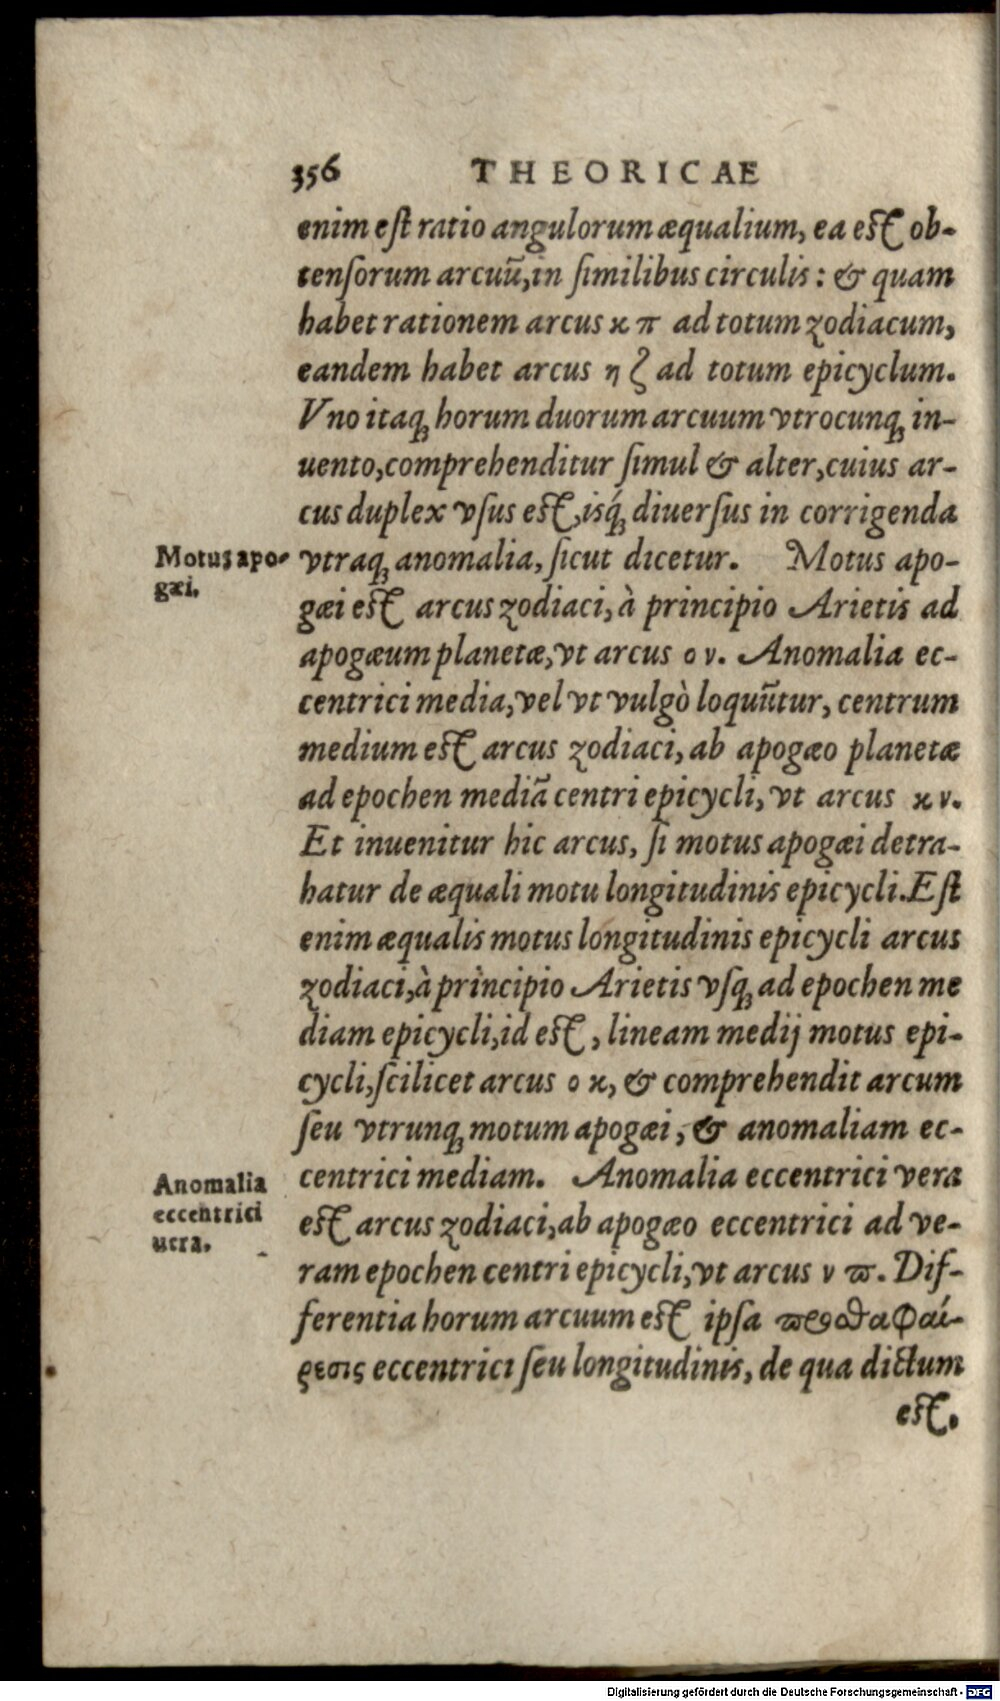 356 THEORICAE
enim est ratio angulorum æqualium, ea est ob-
tensorum arcuũ, in similibus circulis: & quam
habet rationem arcus ϰ π ad totum zodiacum,
eandem habet arcus η ζ ad totum epicyclum.
Vno itaq; horum duorum arcuum vtrocunq; in-
uento, comprehenditur simul & alter, cuius ar-
cus duplex vsus est, isq́; diuersus in corrigenda
Motus apo-
gæi.
vtraq; anomalia, sicut dicetur. Motus apo-
gæi est arcus zodiaci, à principio Arietis ad
apogæum planetæ, vt arcus ο ν. Anomalia ec-
centrici media, vel vt vulgò loquũtur, centrum
medium est arcus zodiaci, ab apogæo planetæ
ad epochen mediã centri epicycli, vt arcus ϰ ν.
Et inuenitur hic arcus, si motus apogæi detra-
hatur de æquali motu longitudinis epicycli. Est
enim æqualis motus longitudinis epicycli arcus
zodiaci, à principio Arietis vsq; ad epochen me
diam epicycli, id est, lineam medij motus epi-
cycli, scilicet arcus ο ϰ, & comprehendit arcum
seu vtrunq; motum apogæi, & anomaliam ec-
Anomalia
eccentrici
uera.
centrici mediam. Anomalia eccentrici vera
est arcus zodiaci, ab apogæo eccentrici ad ve-
ram epochen centri epicycli, vt arcus ν ϖ. Dif-
ferentia horum arcuum est ipsa ϖροσθαφαί-
ρεσις eccentrici seu longitudinis, de qua dictum
est.
Digitalisierung gefördert durch die Deutsche Forschungsgemeinschaft - DFG